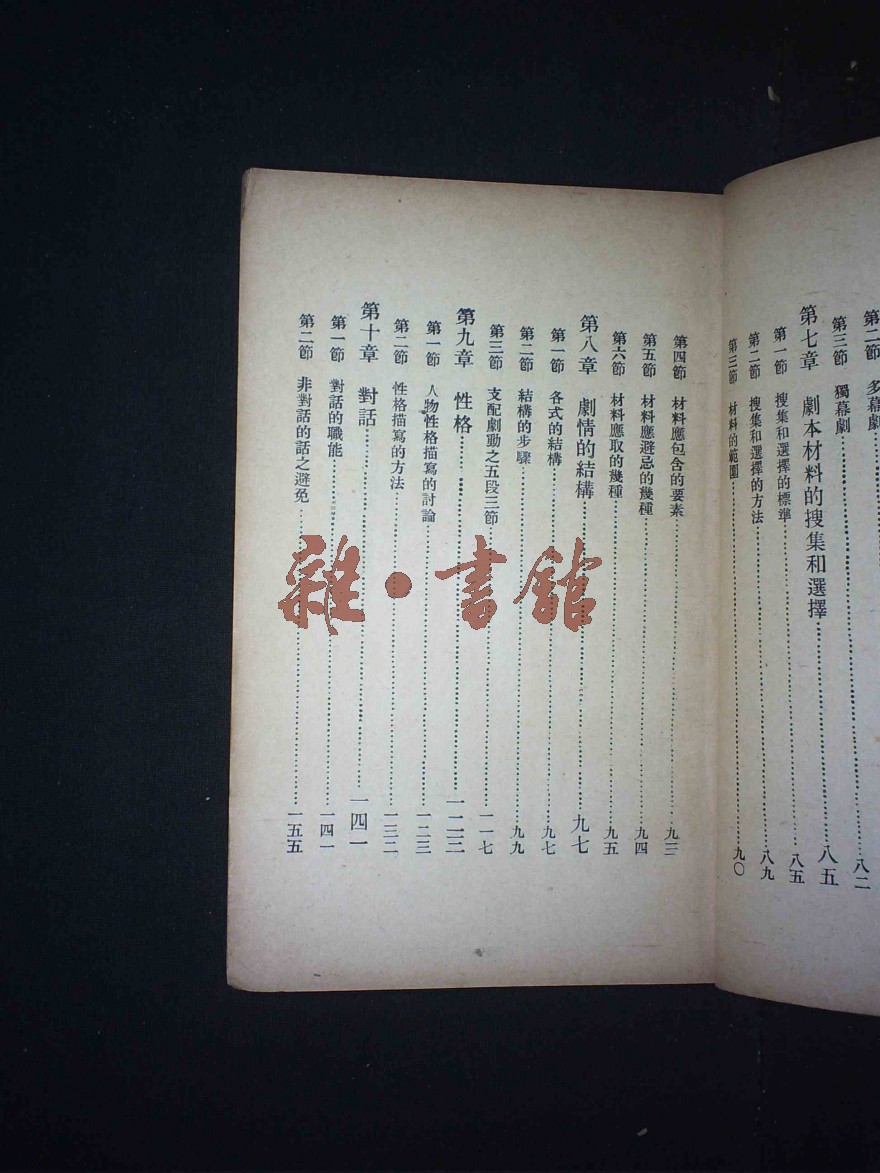 第二節 多幕劇
第三節 獨幕劇……八二
第七章 劇本材料的搜集和選擇……八五
第一節 搜集和選擇的標準……八五
第二節 搜集和選擇的方法……八九
第三節 材料的範圍……九〇
第四節 材料應包含的要素……九三
第五節 材料應避忌的幾種……九四
第六節 材料應取的幾種……九五
第八章 劇情的結構……九七
第一節 各式的結構……九七
第二節 結構的步驟……九九
第三節 支配劇動之五段三節……一一七
第九章 性格……一二三
第一節 人物性格描寫的討論……一二三
第二節 性格描寫的方法……一三二
第十章 對話……一四一
第一節 對話的職能……一四一
第二節 非對話的話之避免……一五五
雜·書館